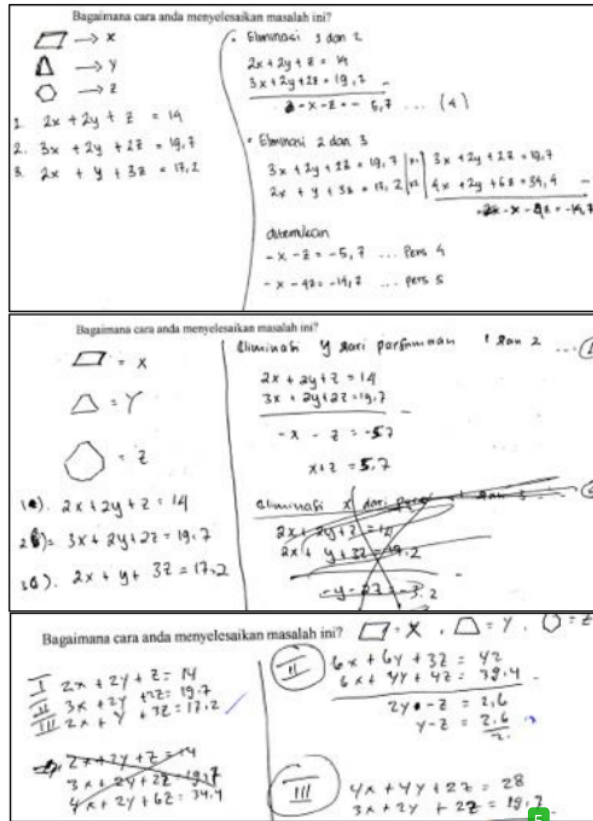 Bagaimana cara anda menyelesaikan masalah ini?
→ x
→ y
→ z
1. 2x + 2y + z = 14
2. 3x + 2y + 2z = 19,7
3. 2x + y + 3z = 17,2
• Eliminasi 1 dan 2
2x + 2y + z = 14
3x + 2y + 2z = 19,7 -
-x - z = - 5,7 ... (4)
• Eliminasi 2 dan 3
3x + 2y + 2z = 19,7 |x1| 3x + 2y + 2z = 19,7
2x + y + 3z = 17,2 |x2| 4x + 2y + 6z = 34,4 -
-x - 4z = -14,7
ditemukan
-x - z = -5,7 ... Pers 4
-x - 4z = -14,7 ... pers 5
Bagaimana cara anda menyelesaikan masalah ini?
= x
= Y
= z
1). 2x + 2y + z = 14
2) = 3x + 2y + 2z = 19.7
3). 2x + y + 3z = 17.2
Eliminasi y dari persamaan 1 dan 2 ...
2x + 2y + z = 14
3x + 2y + 2z = 19.7 -
-x - z = -5.7
x + z = 5.7
eliminasi x dari
2x + 2y + z = 14
2x + y + 3z = 17.2 -
-y - 2z = -3.2
Bagaimana cara anda menyelesaikan masalah ini? = X , = Y , = Z
I 2x + 2y + z = 14
II 3x + 2y + 2z = 19.7
III 2x + y + 3z = 17.2
2x + 2y + z = 14
3x + 2y + 2z = 19.7
4x + 2y + 6z = 34.4
II
6x + 6y + 3z = 42
6x + 4y + 4z = 39.4 -
2y - z = 2,6
y - z = 2.6
2.
III
4x + 4y + 2z = 28
3x + 2y + 2z = 19.7
5